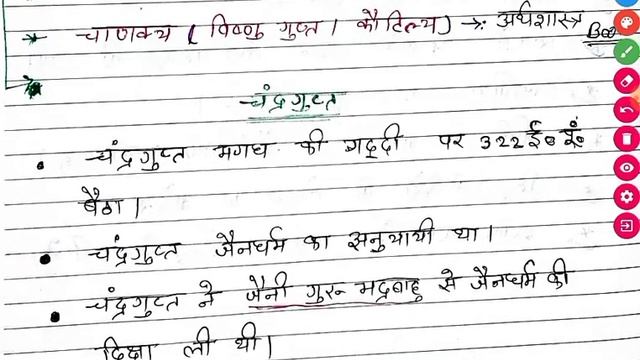 * चाणक्य ( विष्णु गुप्त । कौटिल्य) →: अर्थशास्त्र Boo
*
चंद्रगुप्त
• चंद्रगुप्त मगध की गद्दी पर 322ई० ई०
बैठा।
• चंद्रगुप्त जैनधर्म का अनुयायी था।
• चंद्रगुप्त ने जैनी गुरू भद्रबाहु से जैनधर्म की
दिक्षा ली थी।